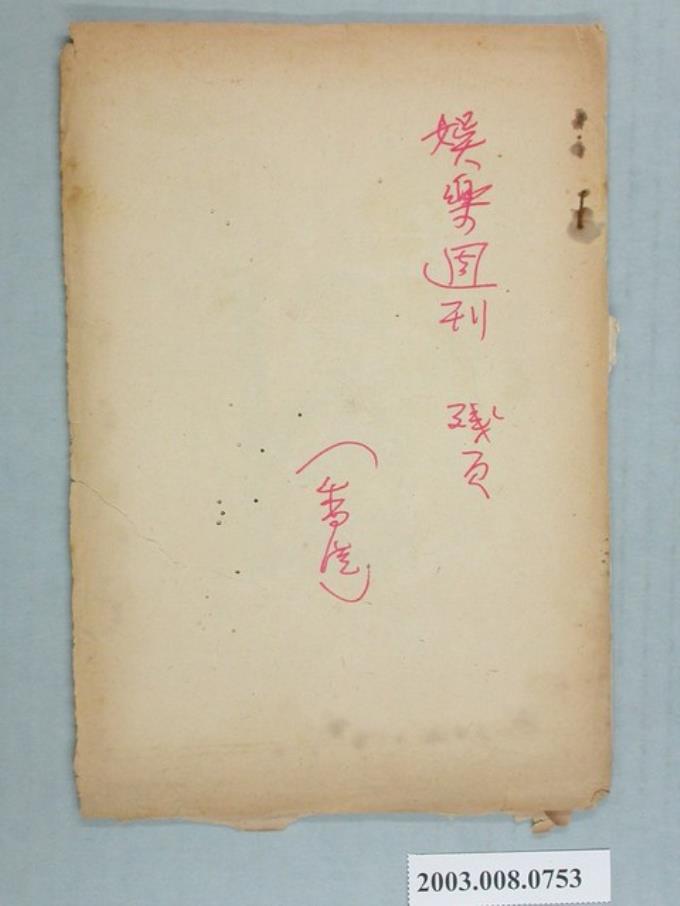 娛樂週刊 残页
(香港)
2003.008.0753